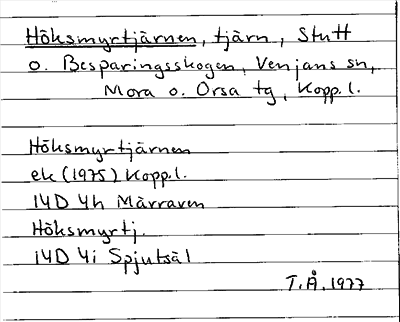 Höksmyrtjärnen, tjärn, Stutt
o. Besparingsskogen, Venjans sn,
Mora o. Orsa tg, Kopp.l.
Höksmyrtjärnen
ek (1975) Kopp.l.
14D 4h Märraven
Höksmyrtj.
14D 4i Spjutsäl
T.Å. 1977